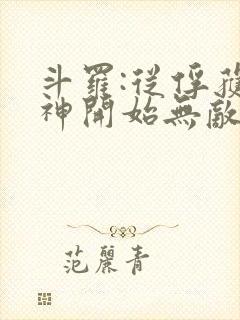 斗羅:從俘獲
神開始無敵
范麗青